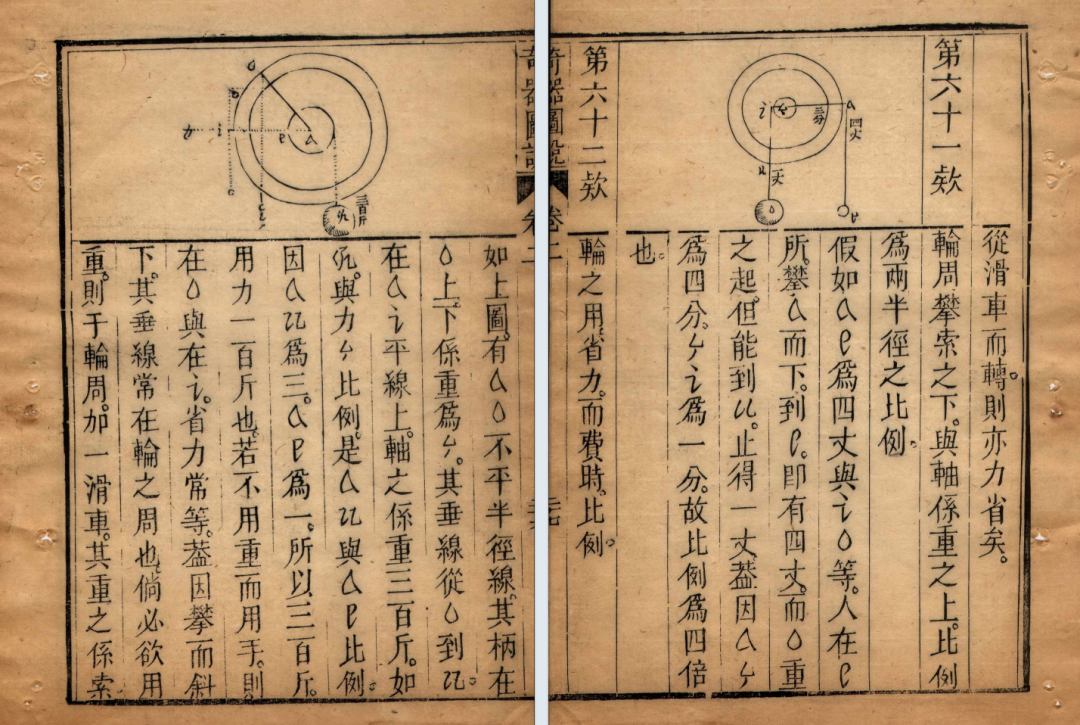 從滑車而轉。則亦力省矣。
第六十一欸
a
四丈
三分
i
一丈
o
e
輪周攀索之下。與軸係重之上。比例
爲兩半徑之比例。
假如a e爲四丈與i o等。人在e
所攀a而下。到e。即有四丈。而o重
之起但能到u。止得一丈。葢因aㄣ
爲四分。ㄣi爲一分。故比例爲四倍
也。
第六十二欸
輪之用。省力。而費時。比例。
奇器圖說
卷二
o
i
e
a
三百斤
如上圖。有a o不平半徑線。其柄在
o上。下係重爲ㄣ。其垂線從o到u。
在a i平線上。軸之係重三百斤。如
與力ㄣ比例。是a u與a e比例。
因a u爲三。a e爲一。所以三百斤。
用力一百斤也。若不用重而用手。則
在o與在i。省力常等。葢因攀而斜
下。其垂線常在輪之周也。倘必欲用
重。則于輪周。加一滑車。其重之係索